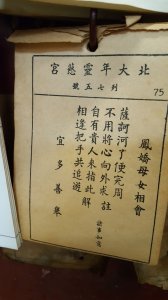 北大年靈慈宮
列七五號
75
鳳嬌母女相會
薩訶河了便完周
不用將心向外求註
自有貴人來指此解
相逢把手共追遊
諸事如意
宜多善舉